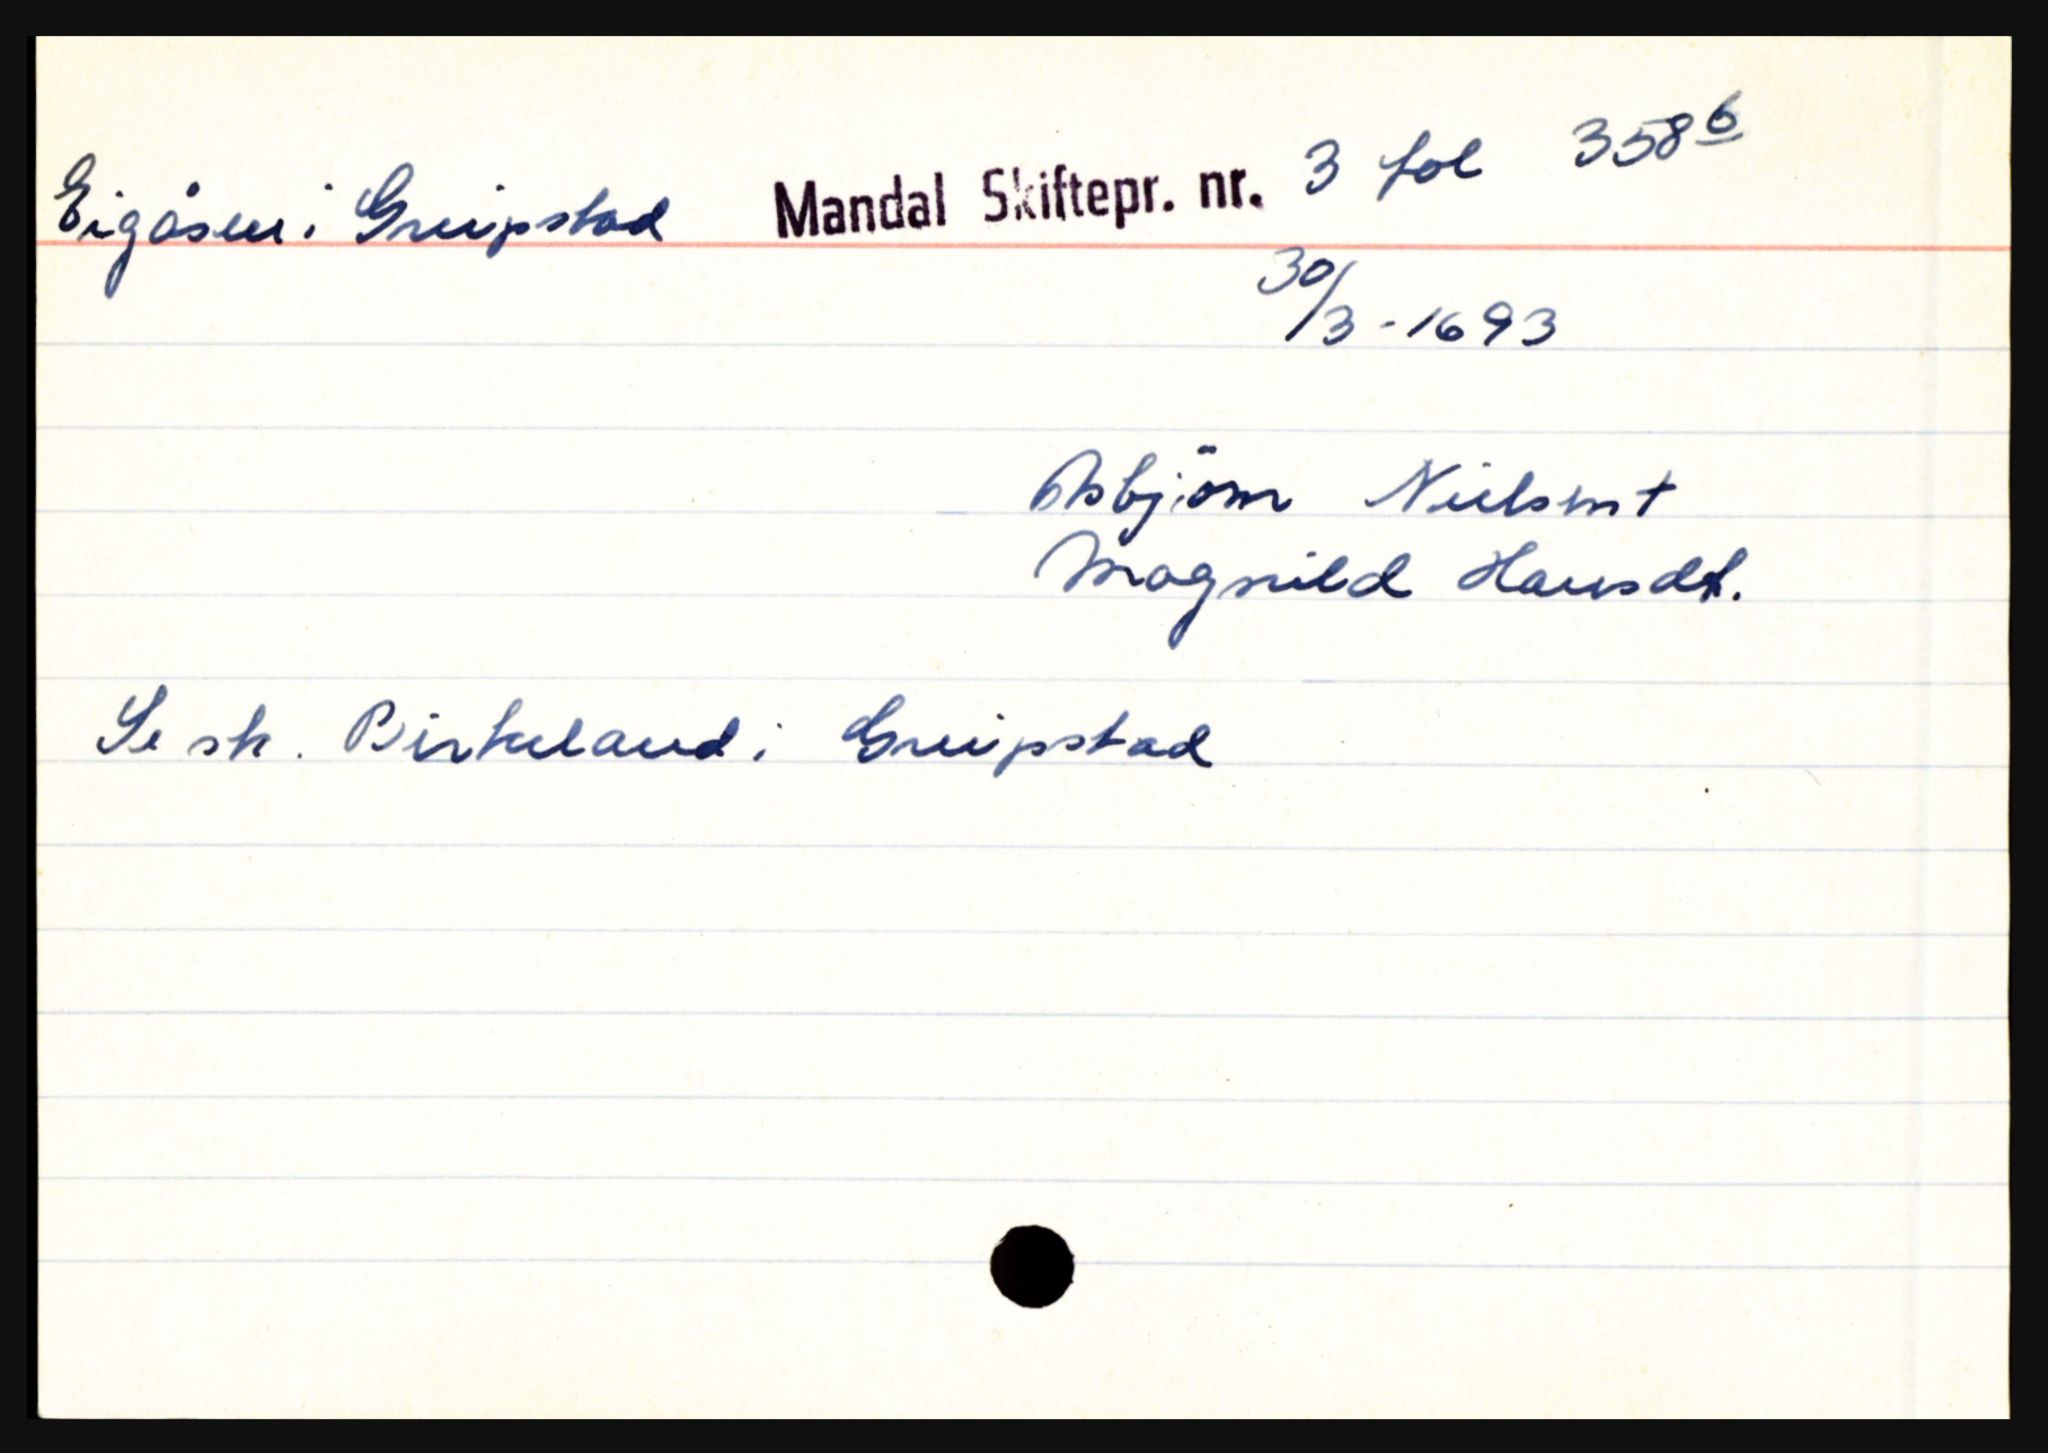 Eigåsen i Greipstad Mandal Skiftepr. nr. 3 fol 358b
30/3-1693
Asbjörn Nielsen †
Magnild Hansdt.
Se sk. Birkeland i Greipstad